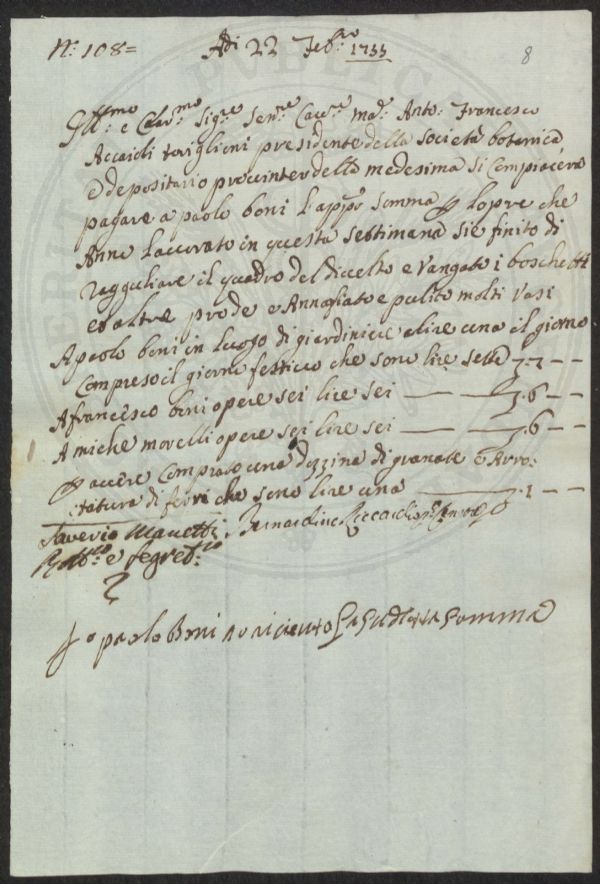 N.º 108=
Adi 22 Feb.ro 1755
8
Ill.mo e Clar.mo Sig.re Sen.re Cav.re Mar. Anto: Francesco
Acciaioli toriglioni presidente della società botanica
e depositario pro interi della medesima si Compiacerà
pagare a paolo boni l'app.so Somma p lopre che
Anno lavorato in questa settimana sie finito di
ragguliare il quadro del divelto e vangato i boschetti
et altre prode e Annafiato e pulito molti vasi
A paolo boni in luogo di giardiniere a lire una il giorno
Compreso il giorno festivo che sono lire sette 7.7 — —
A francesco boni opere sei lire sei — — 7.6 — —
A miche morelli opere sei lire sei — — 7.6 — —
p avere Comprato una dozzina di granate e Arro:
:tatura di ferri che sono lire una — 7.1 — —
Saverio Manetti Bernardino Riccardi
e Segret.rio
Io paolo Boni o riceuto la sudetta somma